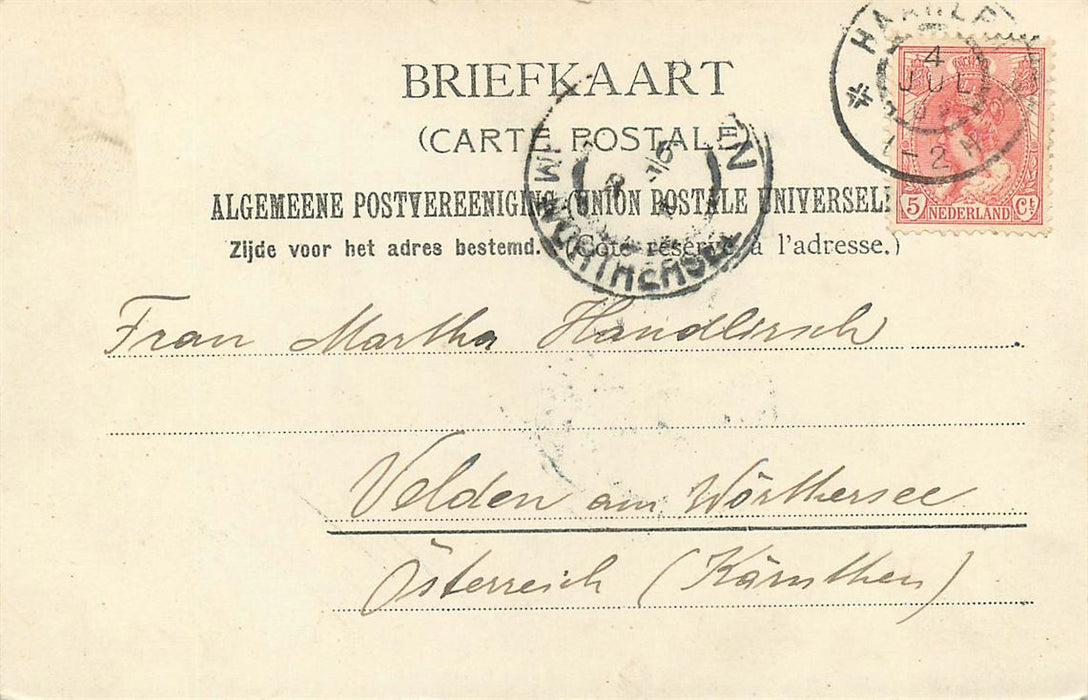 BRIEFKAART
(CARTE POSTALE)
ALGEMEENE POSTVEREENIGING (UNION POSTALE UNIVERSELLE
Zijde voor het adres bestemd. (Côté réservé à l'adresse.)
4
JUL
1-2 N
5 NEDERLAND Ct
Frau Martha Handlirsch
Velden am Wörthersee
Österreich (Kärnthen)